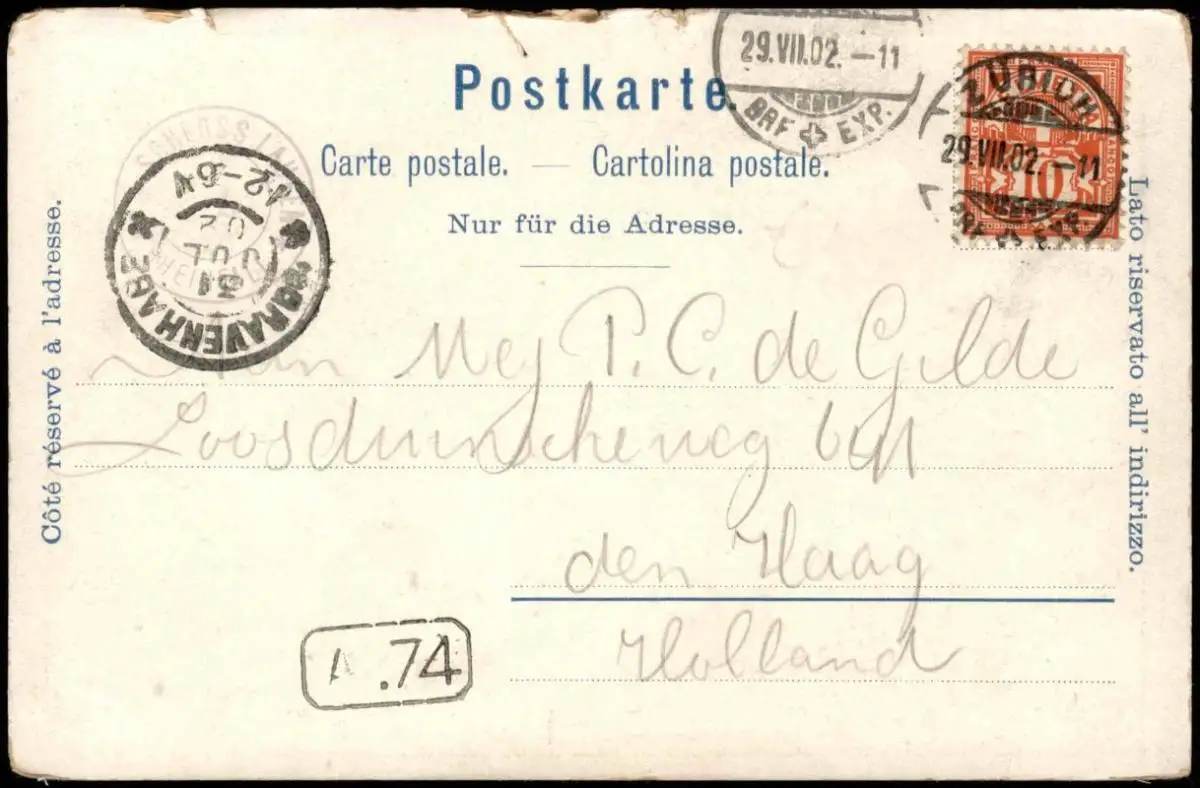 Postkarte.
Carte postale. — Cartolina postale.
Nur für die Adresse.
Côté réservé à l'adresse.
Lato riservato all' indirizzo.
29.VII.02. –11
BRF EXP.
ZÜRICH
29.VII.02. –11
10
'S GRAVENHAGE
31
JUL
02
12-6V
SCHLOSS LAUFEN
Mej P. C. de Gilde
den Haag
Holland
A .74